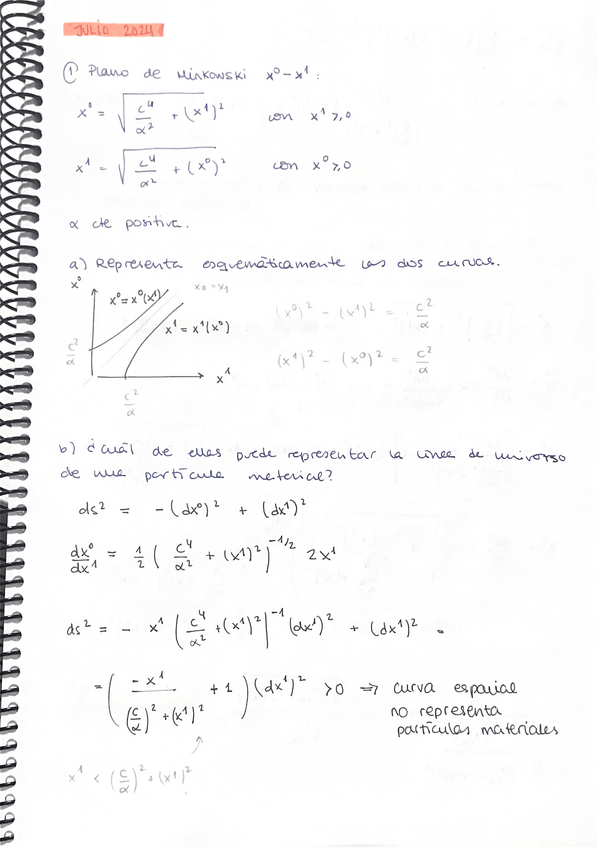 JULIO 2024
① Plano de Minkowski x⁰-x¹:
x⁰ = √(c⁴/α² + (x¹)²) con x¹ ⩾ 0
x¹ = √(c⁴/α² + (x⁰)²) con x⁰ ⩾ 0
α cte positiva.
a) Representa esquemáticamente las dos curvas.
x⁰
x⁰ = x⁰(x¹)
x₀ = x₁
x¹ = x¹(x⁰)
c²/α
x¹
c²/α
(x⁰)² - (x¹)² = c²/α
(x¹)² - (x⁰)² = c²/α
b) ¿cuál de ellas puede representar la línea de universo
de una partícula material?
ds² = -(dx⁰)² + (dx¹)²
dx⁰/dx¹ = 1/2 (c⁴/α² + (x¹)²)^(-1/2) 2x¹
ds² = - x¹ (c⁴/α² + (x¹)²)^(-1) (dx¹)² + (dx¹)² =
= (-x¹/((c/α)² + (x¹)²) + 1)(dx¹)² > 0 ⇒ curva espacial
no representa
partículas materiales
x¹ < (c/α)² + (x¹)²